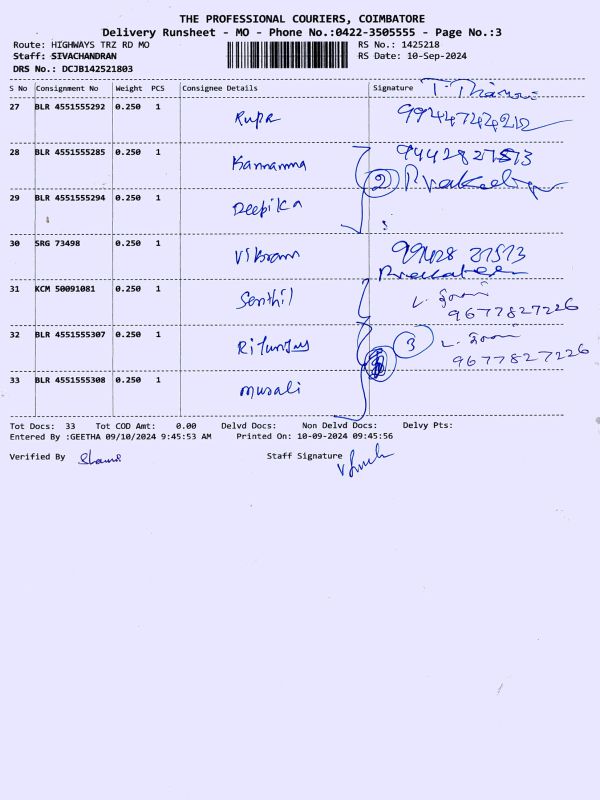 THE PROFESSIONAL COURIERS, COIMBATORE
Delivery Runsheet - MO - Phone No.:0422-3505555 - Page No.:3
Route: HIGHWAYS TRZ RD MO RS No.: 1425218
Staff: SIVACHANDRAN RS Date: 10-Sep-2024
DRS No.: DCJB142521803
S No Consignment No Weight PCS Consignee Details Signature
27 BLR 4551555292 0.250 1 Rupa
28 BLR 4551555285 0.250 1 Kannamma 9442827573
29 BLR 4551555294 0.250 1 Deepika 2
30 SRG 73498 0.250 1 Vikram 99428 27573
31 KCM 50091081 0.250 1 Senthil 9677827226
32 BLR 4551555307 0.250 1 3 9677827226
33 BLR 4551555308 0.250 1 murali
Tot Docs: 33 Tot COD Amt: 0.00 Delvd Docs: Non Delvd Docs: Delvy Pts:
Entered By :GEETHA 09/10/2024 9:45:53 AM Printed On: 10-09-2024 09:45:56
Verified By Staff Signature